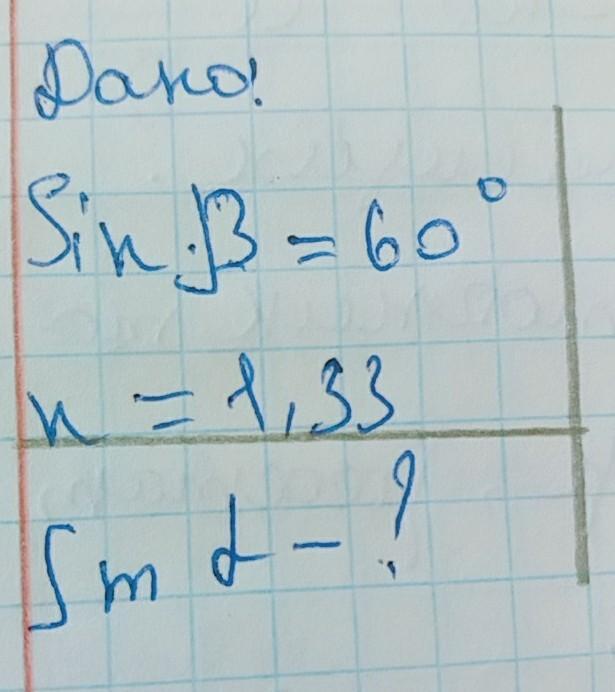 Дано!
Sin β = 60°
n = 1,33
Sin α - ?